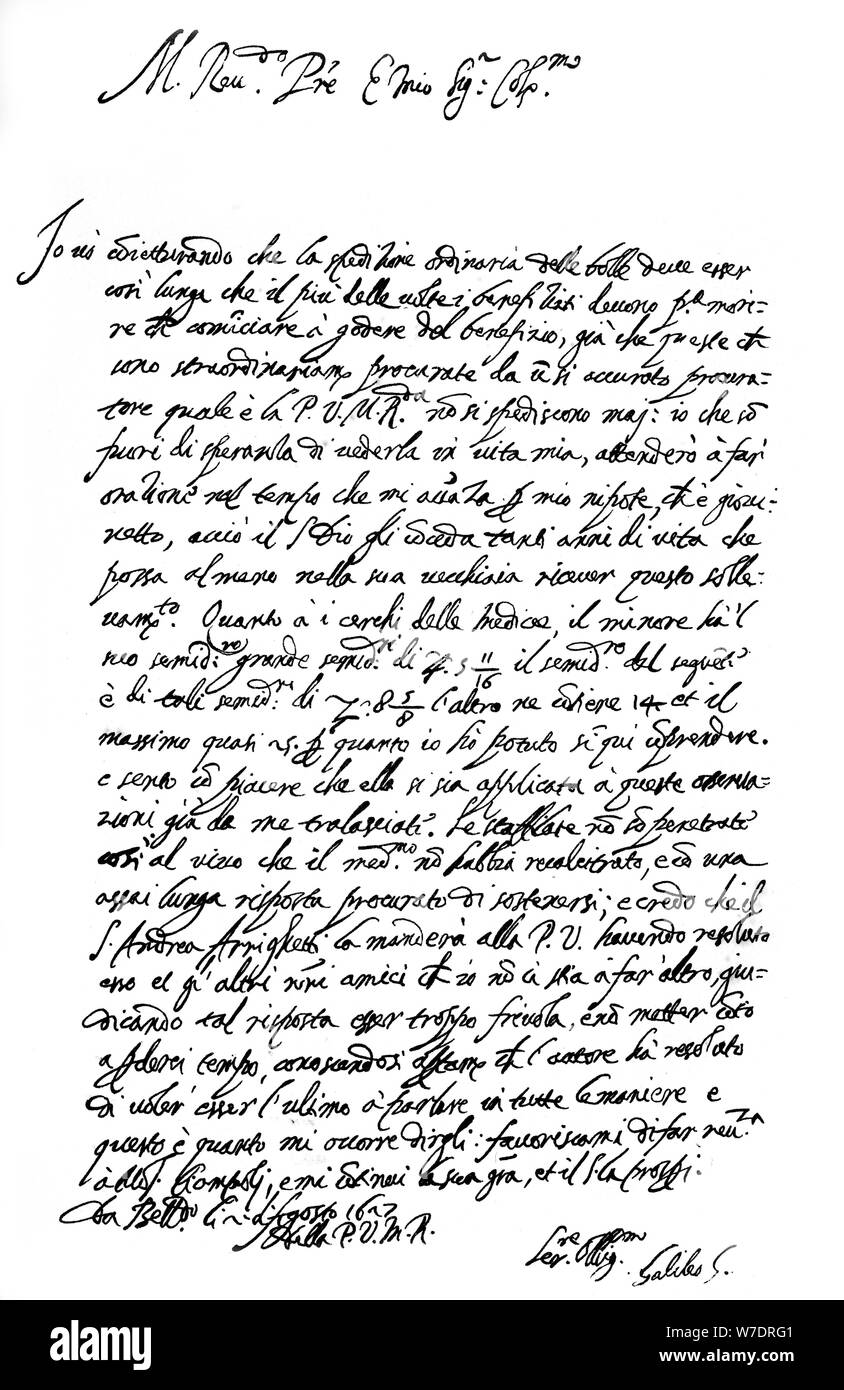 M. Reu.do Pre E mio Sig.r Col.mo
Io uò cõietturando che la speditione ordinaria delle bolle deue esser
così lunga che il più delle uolte i benefitiati deuono p.a mori-
re che cominciare à godere del benefizio, già che queste che
sono straordinariam procurate da ũ sì accurato procura=
tore quale è la P. V. M. R.da nõ si spediscono mai: io che sõ
fuori di speranza di uederla in uita mia, attenderò à far'
oratione nel tempo che mi auãza p mio nipote, ch'è giovi-
netto, acciò il S. Dio gli cõceda tanti anni di uita che
possa almeno nella sua uecchiaia riceuer questo solle-
uam.to. Quanto à i cerchi delle Medicee, il minore hà 'l
suo semid.ro grande semid.ri di 5 11/16 il semid.ro del seguẽte
è di tali semid.ri di 8 5/8 l'altro ne cõtiene 14 et il
massimo quasi 25. p quanto io hò potuto sin qui cõprendere.
e sento cõ piacere che ella si sia applicata à queste osserua-
zioni già da me tralasciate. Le staffilate nõ sõ penetrate
così al uiuo che il med.mo nõ habbia recalcitrato, e cõ una
assai lunga risposta procurato di sostenersi; e credo che il
S. Andrea Arrighetti la manderà alla P. V. hauendo resoluto
esso et gl'altri nõri amici che io nõ ci stia à far'altro, giu-
dicando tal risposta esser troppo friuola, e nõ metter cõto
a pderci tempo, conoscendosi aptam che l'autore hà resoluto
di uoler' esser l'ultimo à parlare in tutte le maniere e
questo è quanto mi occorre dirgli: fauoriscami di far reu.za
à Mõs. Ciampoli, e mi cõtinui la sua grã, et il S. la prosp.i
Da Bell.do li 2 d'Agosto 1627
Della P. V. M. R.
Ser.re Oblig.mo
Galileo G.
alamy
Image ID: W7DRG1
www.alamy.com